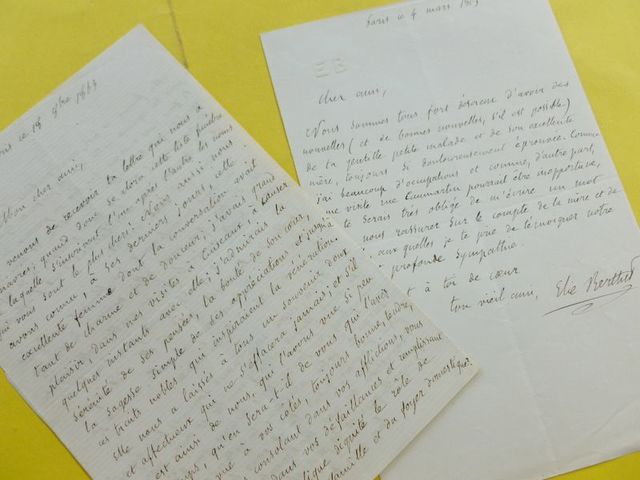 ris ce 14 9bre 1883
Mon cher ami,
venons de recevoir ta lettre qui nous a
quand donc se clora cette liste funèbre
laquelle s'inscrivent l'un après l'autre les noms
qui vous sont le plus chers! Nous aussi nous
avons connu, à ses derniers jours, cette
excellente femme dont la conversation avait
tant de charme et de douceur; j'avais grand
plaisir, dans mes visites à à causer
quelques instants avec elle; j'admirais la
sérénité de ses pensées, la bonté de son cœur,
la sagesse simple de ses appréciations et jusqu'à
ses traits nobles qui inspiraient la vénération.
elle nous a laissé à tous un souvenir doux
et affectueux qui ne s'effacera jamais; et s'il
est ainsi de nous, qui l'avons vue si peu
qu'en sera-t-il de vous qui l'avez
vue à vos côtés, toujours bonne, tendre,
consolant dans vos afflictions, vous
dans vos défaillances et remplissant
dignité le rôle de
famille et du foyer domestique?
Paris ce 4 mars
EB
Cher ami,
Nous sommes tous fort désireux d'avoir des
nouvelles (et de bonnes nouvelles, s'il est possible)
de ta gentille petite malade et de son excellente
mère, toujours si douloureusement éprouvée. Comme
j'ai beaucoup d'occupations et comme, d'autre part,
une visite rue Caumartin pourrait être inopportune,
te serais très obligé de m'écrire un mot
nous rassurer sur le compte de la mère et de
auxquelles je te prie de témoigner notre
profonde sympathie.
t à toi de cœur
ton vieil ami, Elie Berthet